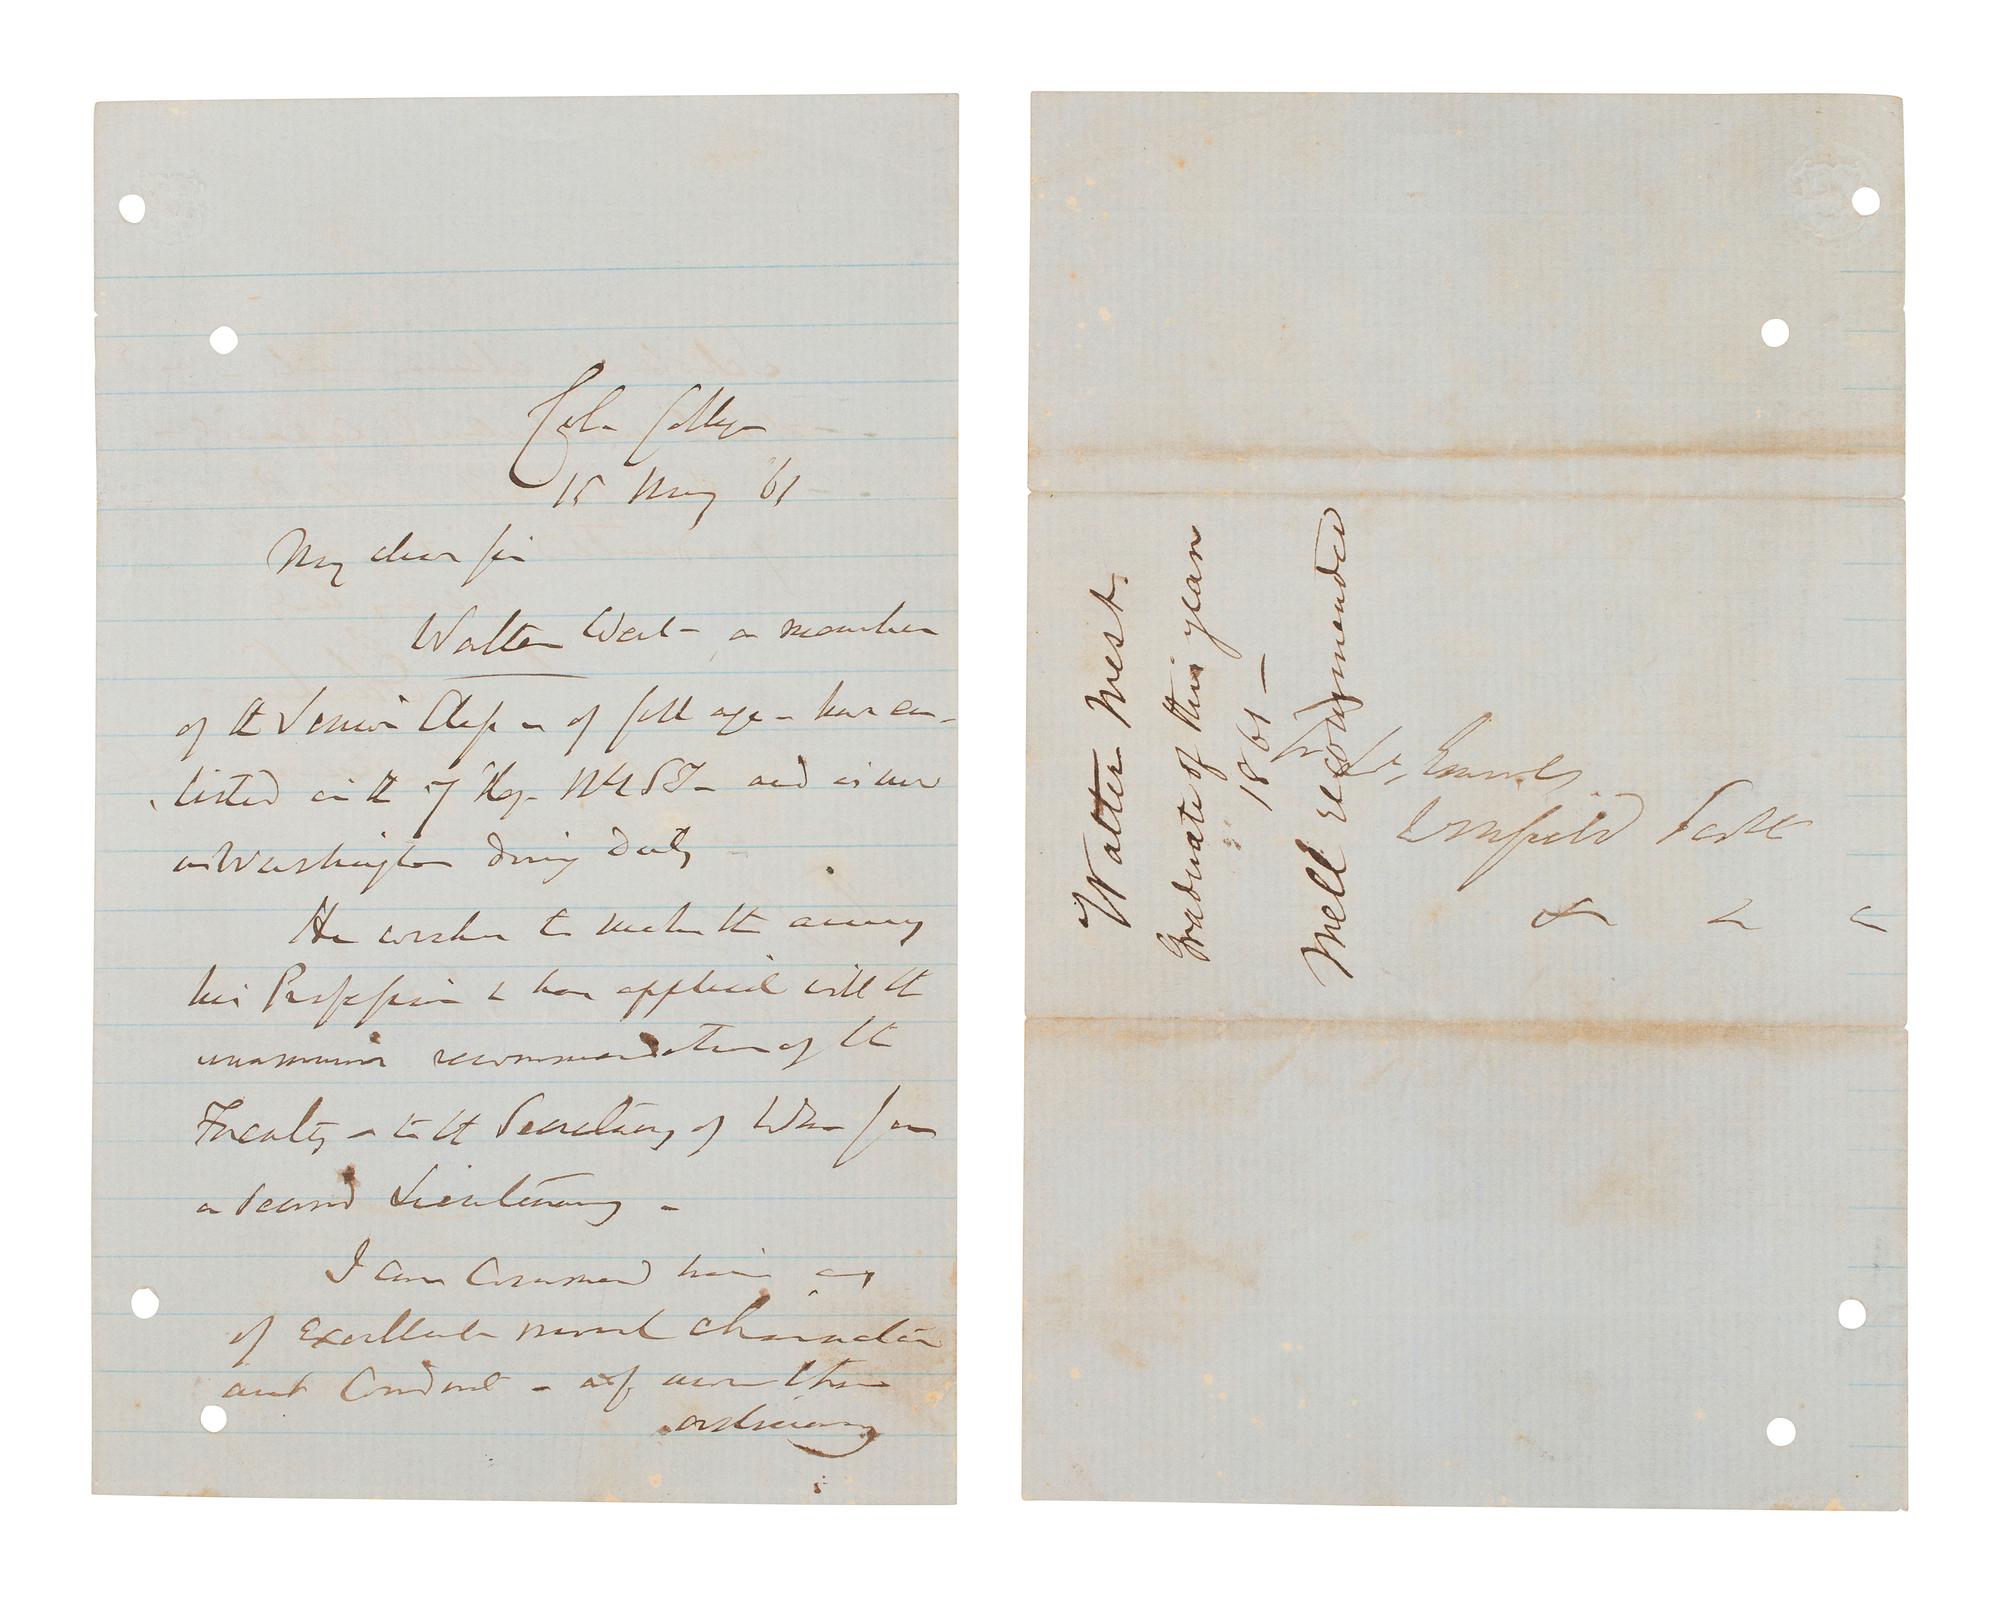 Col. College
15 May '61
My dear Sir
Walter West - a member
of the Senior Class - of full age - has en-
listed in the 7 Reg. - and is now
in Washington doing duty -
He wishes to make the army
his Profession & has applied with the
unanimous recommendation of the
Faculty - to the Secretary of War for
a Second Lieutenancy -
I can commend him as
of excellent moral character
and Conduct - of more than
ordinary
Walter West.
Graduate of this year
1861 -
Well recommended
Lt. General
Winfield Scott
& c c